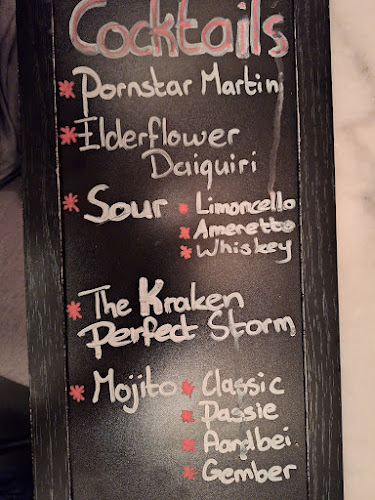 Cocktails
* Pornstar Martini
* Elderflower
Daiquiri
* Sour * Limoncello
* Ameretto
* Whiskey
* The Kraken
Perfect Storm
* Mojito * Classic
* Passie
* Aardbei
* Gember